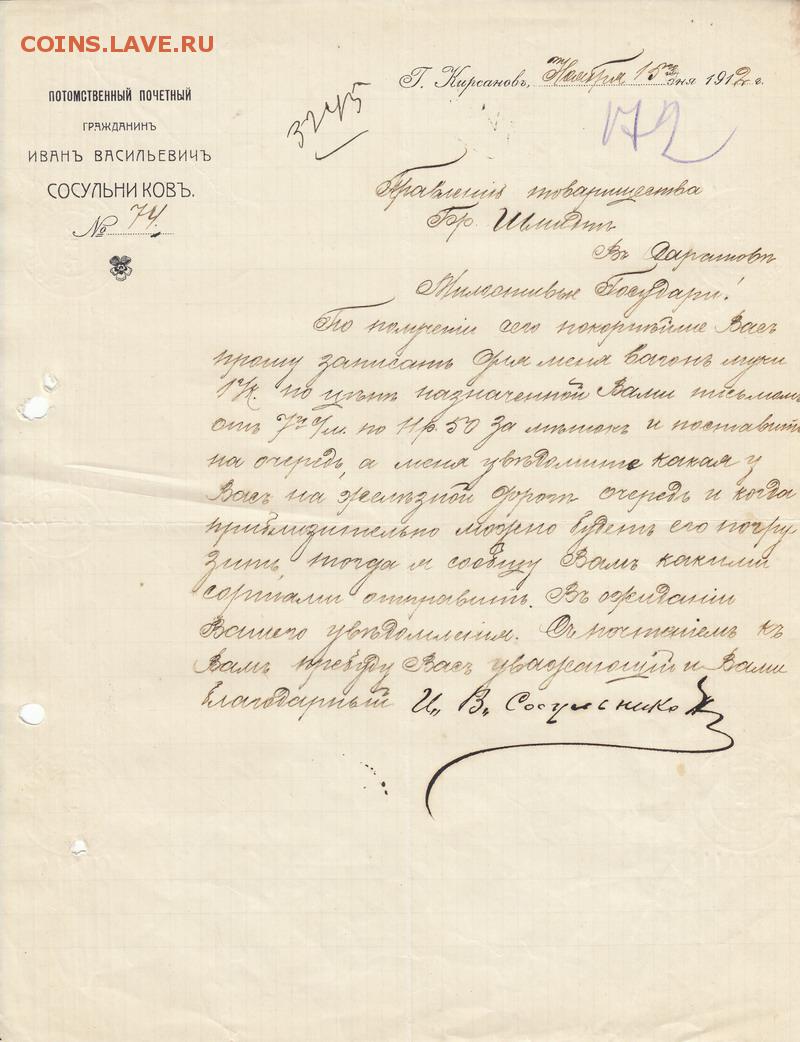 COINS.LAVE.RU
ПОТОМСТВЕННЫЙ ПОЧЕТНЫЙ
ГРАЖДАНИНЪ
ИВАНЪ ВАСИЛЬЕВИЧЪ
СОСУЛЬНИКОВЪ.
№ 74.
3245
Г. Кирсановъ, Ноября 15 дня 1912 г.
172
Правленію товарищества
Бр. Шмидтъ
Въ Саратовѣ
Милостивые Государи!
По полученіи сего покорнѣйше Васъ
прошу записать для меня вагонъ муки
по цѣнѣ назначенной Вами письмомъ
отъ 7го с/м. по 11 р. 50 за мѣшокъ и поставить
на очередь, а меня увѣдомите какая у
Васъ на желѣзной дорогѣ очередь и когда
приблизительно можно будетъ его погру
зить, тогда я сообщу Вамъ какими
сортами отправить. Въ ожиданіи
Вашего увѣдомленія. Съ почтаніемъ къ
Вамъ пребуду Васъ уважающій и Вами
благодарный И. В. Сосульниковъ